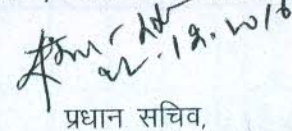 22.12.2016
प्रधान सचिव,